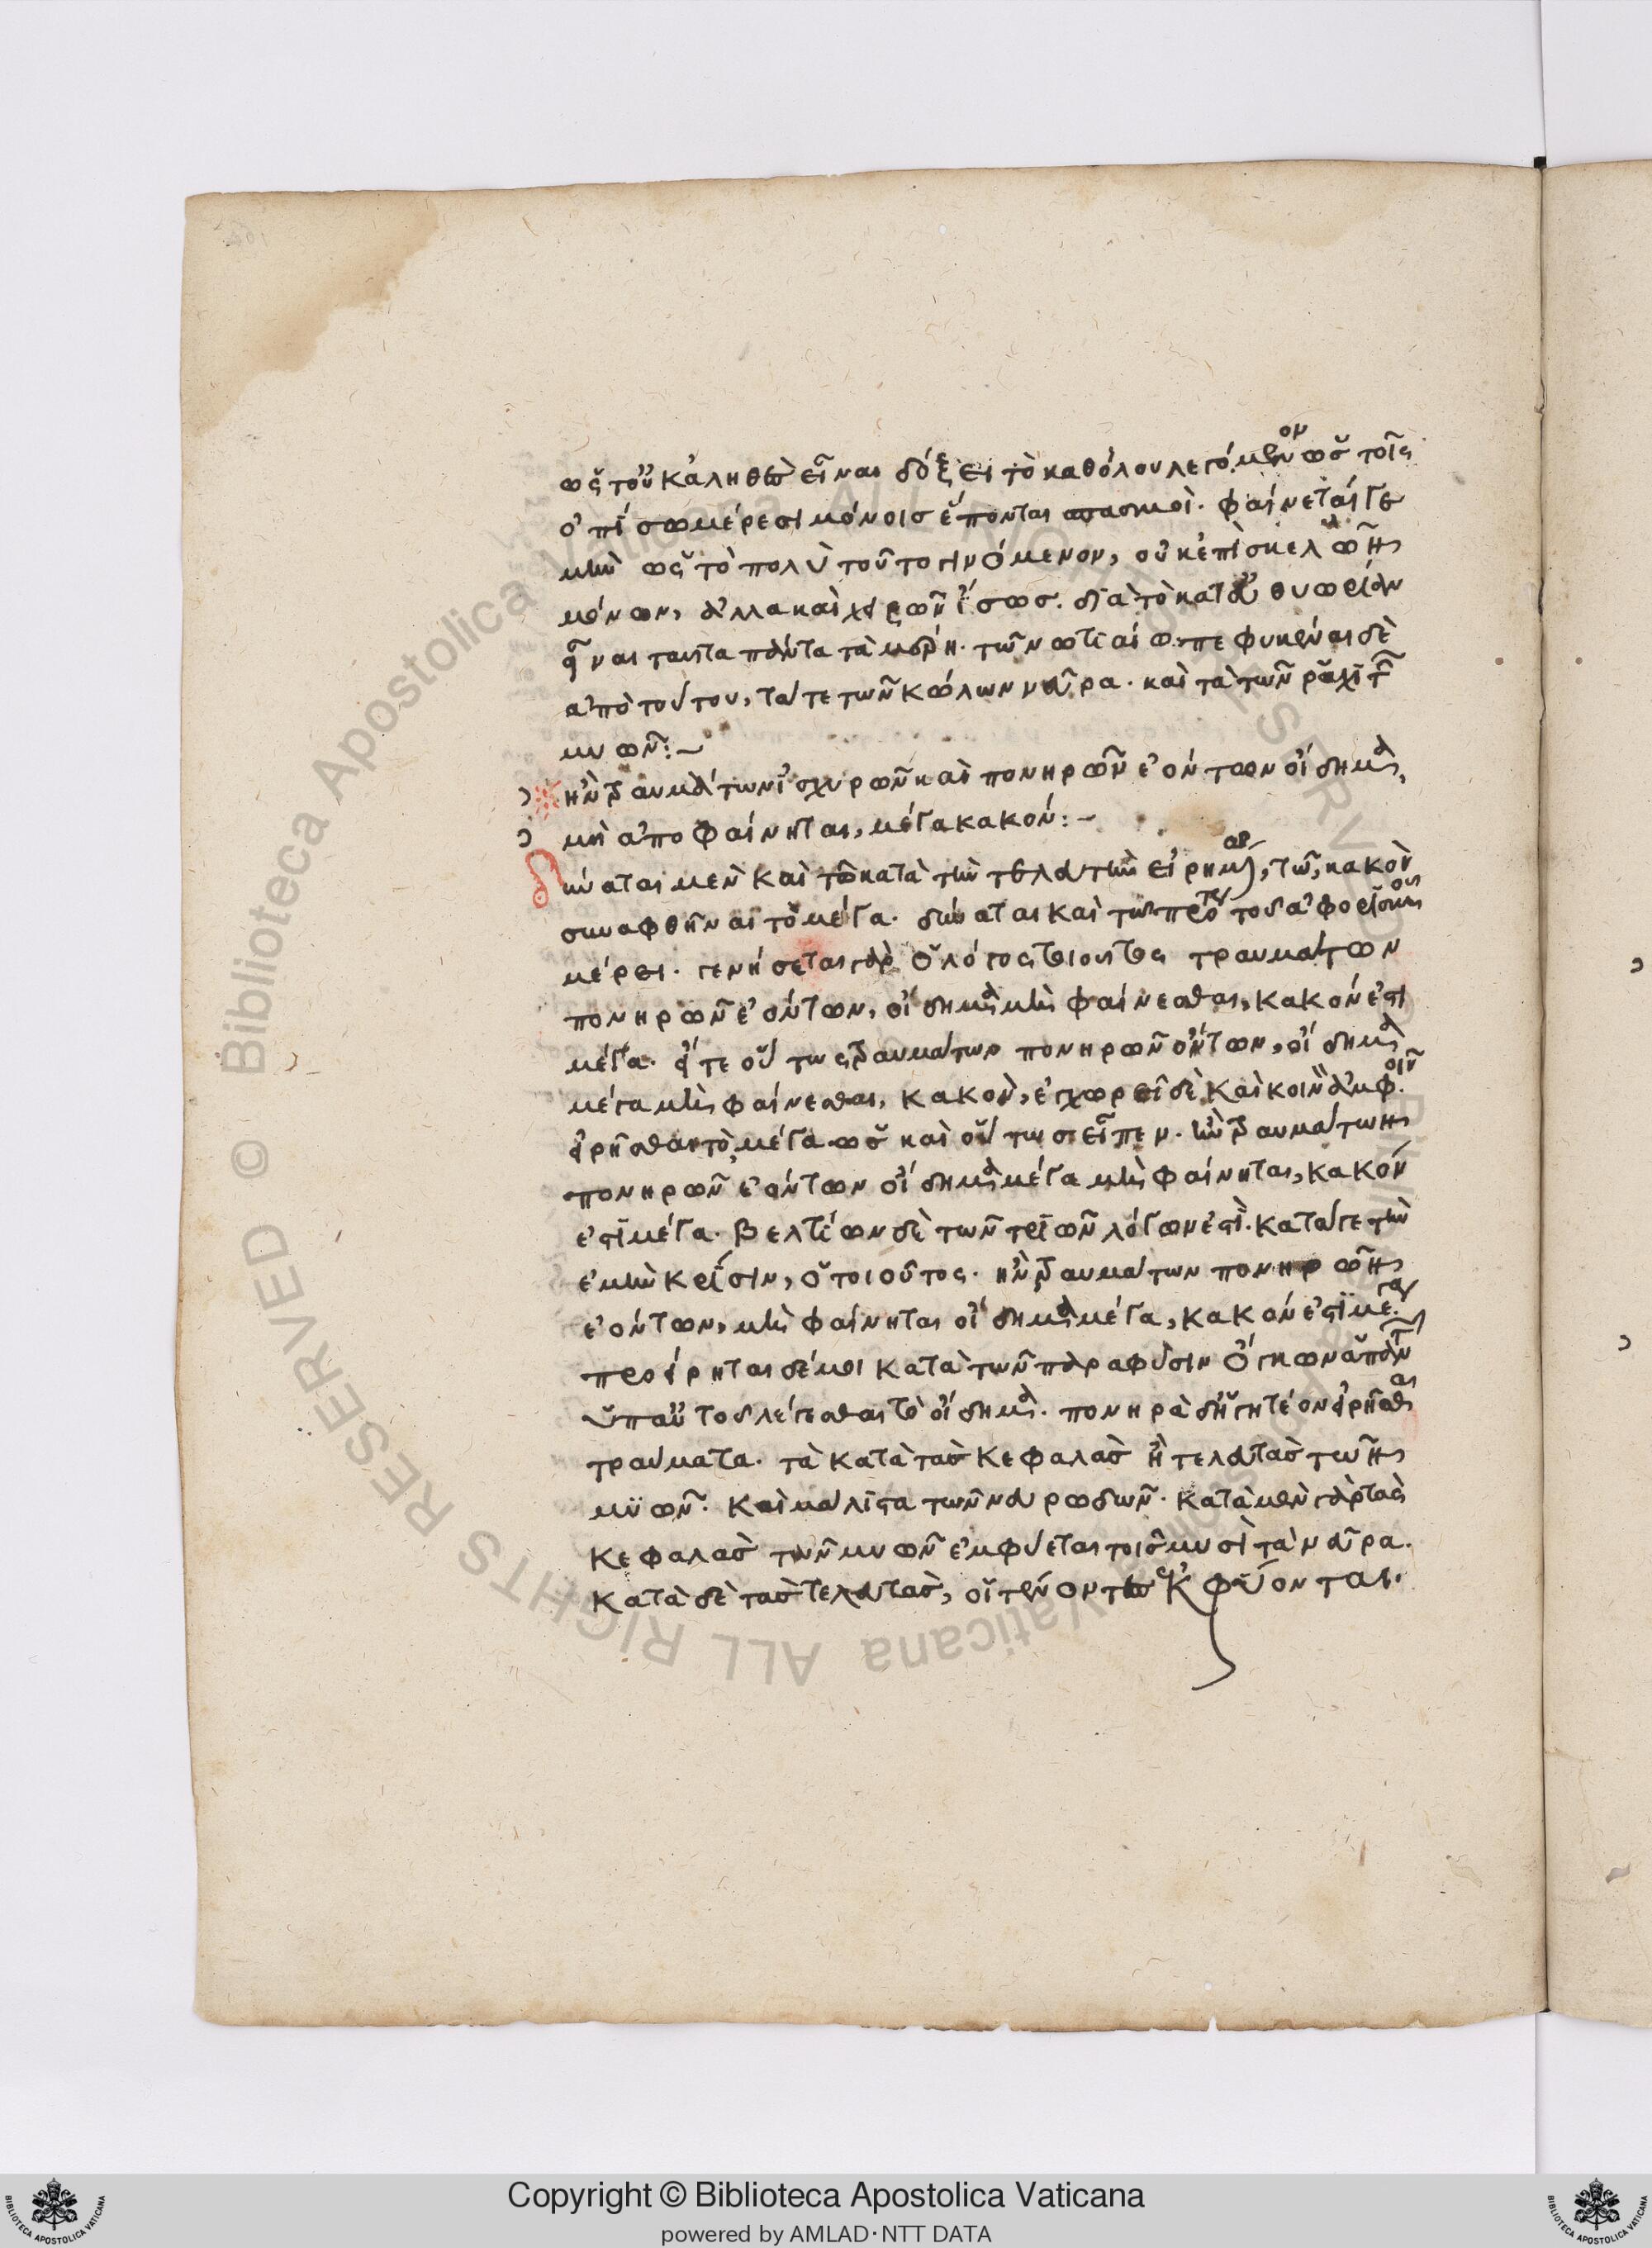 ὡς τοῦκ ἀληθὲς εἶναι δόξει τὸ καθόλου λεγόμενον ὡς τοῖς
ὀπίσω μέρεσι μόνοις ἕπονται σπασμοί. φαίνεταί γε
μὴν ὡς τὸ πολὺ τοῦτο γινόμενον, οὐκ ἐπὶ σκελῶν
μόνων, ἀλλὰ καὶ χειρῶν ἴσως. διὰ τὸ κατ' εὐθυωρίαν
εἶναι ταῦτα πάντα τὰ μέρη. τῶν νωτιαίω. πεφυκέναι δὲ
ἀπὸ τούτου, τά τε τῶν κώλων νεῦρα. καὶ τὰ τῶν ῥαχιτῶν
μυῶν:~
ἢν τραυμάτων ἰσχυρῶν καὶ πονηρῶν ἐόντων οἴδημα,
μὴ ἀποφαίνηται, μέγα κακόν:~
δύναται μὲν καὶ τῶ κατὰ τὴν τελευτὴν εἰρημένω, τῶ, κακὸν
συναφθῆναι τὸ μέγα. δύναται καὶ τῶ προτέρω τοῦ ἀφορισμοῦ
μέρει. γενήσεται γὰρ ὁ λόγος τοιοῦτος τραυμάτων
πονηρῶν ἐόντων, οἴδημα μὴ φαίνεσθαι, κακόν ἐστι
μέγα. εἴτε οὕτως τραυμάτων πονηρῶν ὄντων, οἴδημα
μέγα μὴ φαίνεσθαι, κακὸν, ἐγχωρεῖ δὲ καὶ κοινὸν ἀμφοῖν
εἰρῆσθαι τὸ, μέγα ὡς καὶ οὕτως εἶπεν. ἢν τραυμάτων
πονηρῶν ἐόντων οἴδημα μέγα μὴ φαίνηται, κακόν
ἐστι μέγα. βελτίων δὲ τῶν τριῶν λόγων ἐστὶ. κατά γε τὴν
ἐμὴν κρίσιν, ὁ τοιοῦτος. ἢν τραυμάτων πονηρῶν
ἐόντων, μὴ φαίνηται οἴδημα μέγα, κακόν ἐστι μέγα.
προείρηται δέ μοι κατὰ τῶν παρὰ φύσιν ὄγκων ἁπάντων
ὑπ' αὐτοῦ λέγεσθαι τὸ οἴδημα. πονηρὰ δ' ἡγητέον εἰρῆσθαι
τραύματα. τὰ κατὰ τὰς κεφαλὰς ἢ τελευτὰς τῶν
μυῶν. καὶ μάλιστα τῶν νευρωδῶν. κατὰ μὲν γὰρ τὰς
κεφαλὰς τῶν μυῶν ἐμφύεται τοῖς μυσὶ τὰ νεῦρα.
κατὰ δὲ τὰς τελευτὰς, οἱ τένοντες ἐκφύονται.
Copyright © Biblioteca Apostolica Vaticana
powered by AMLAD·NTT DATA